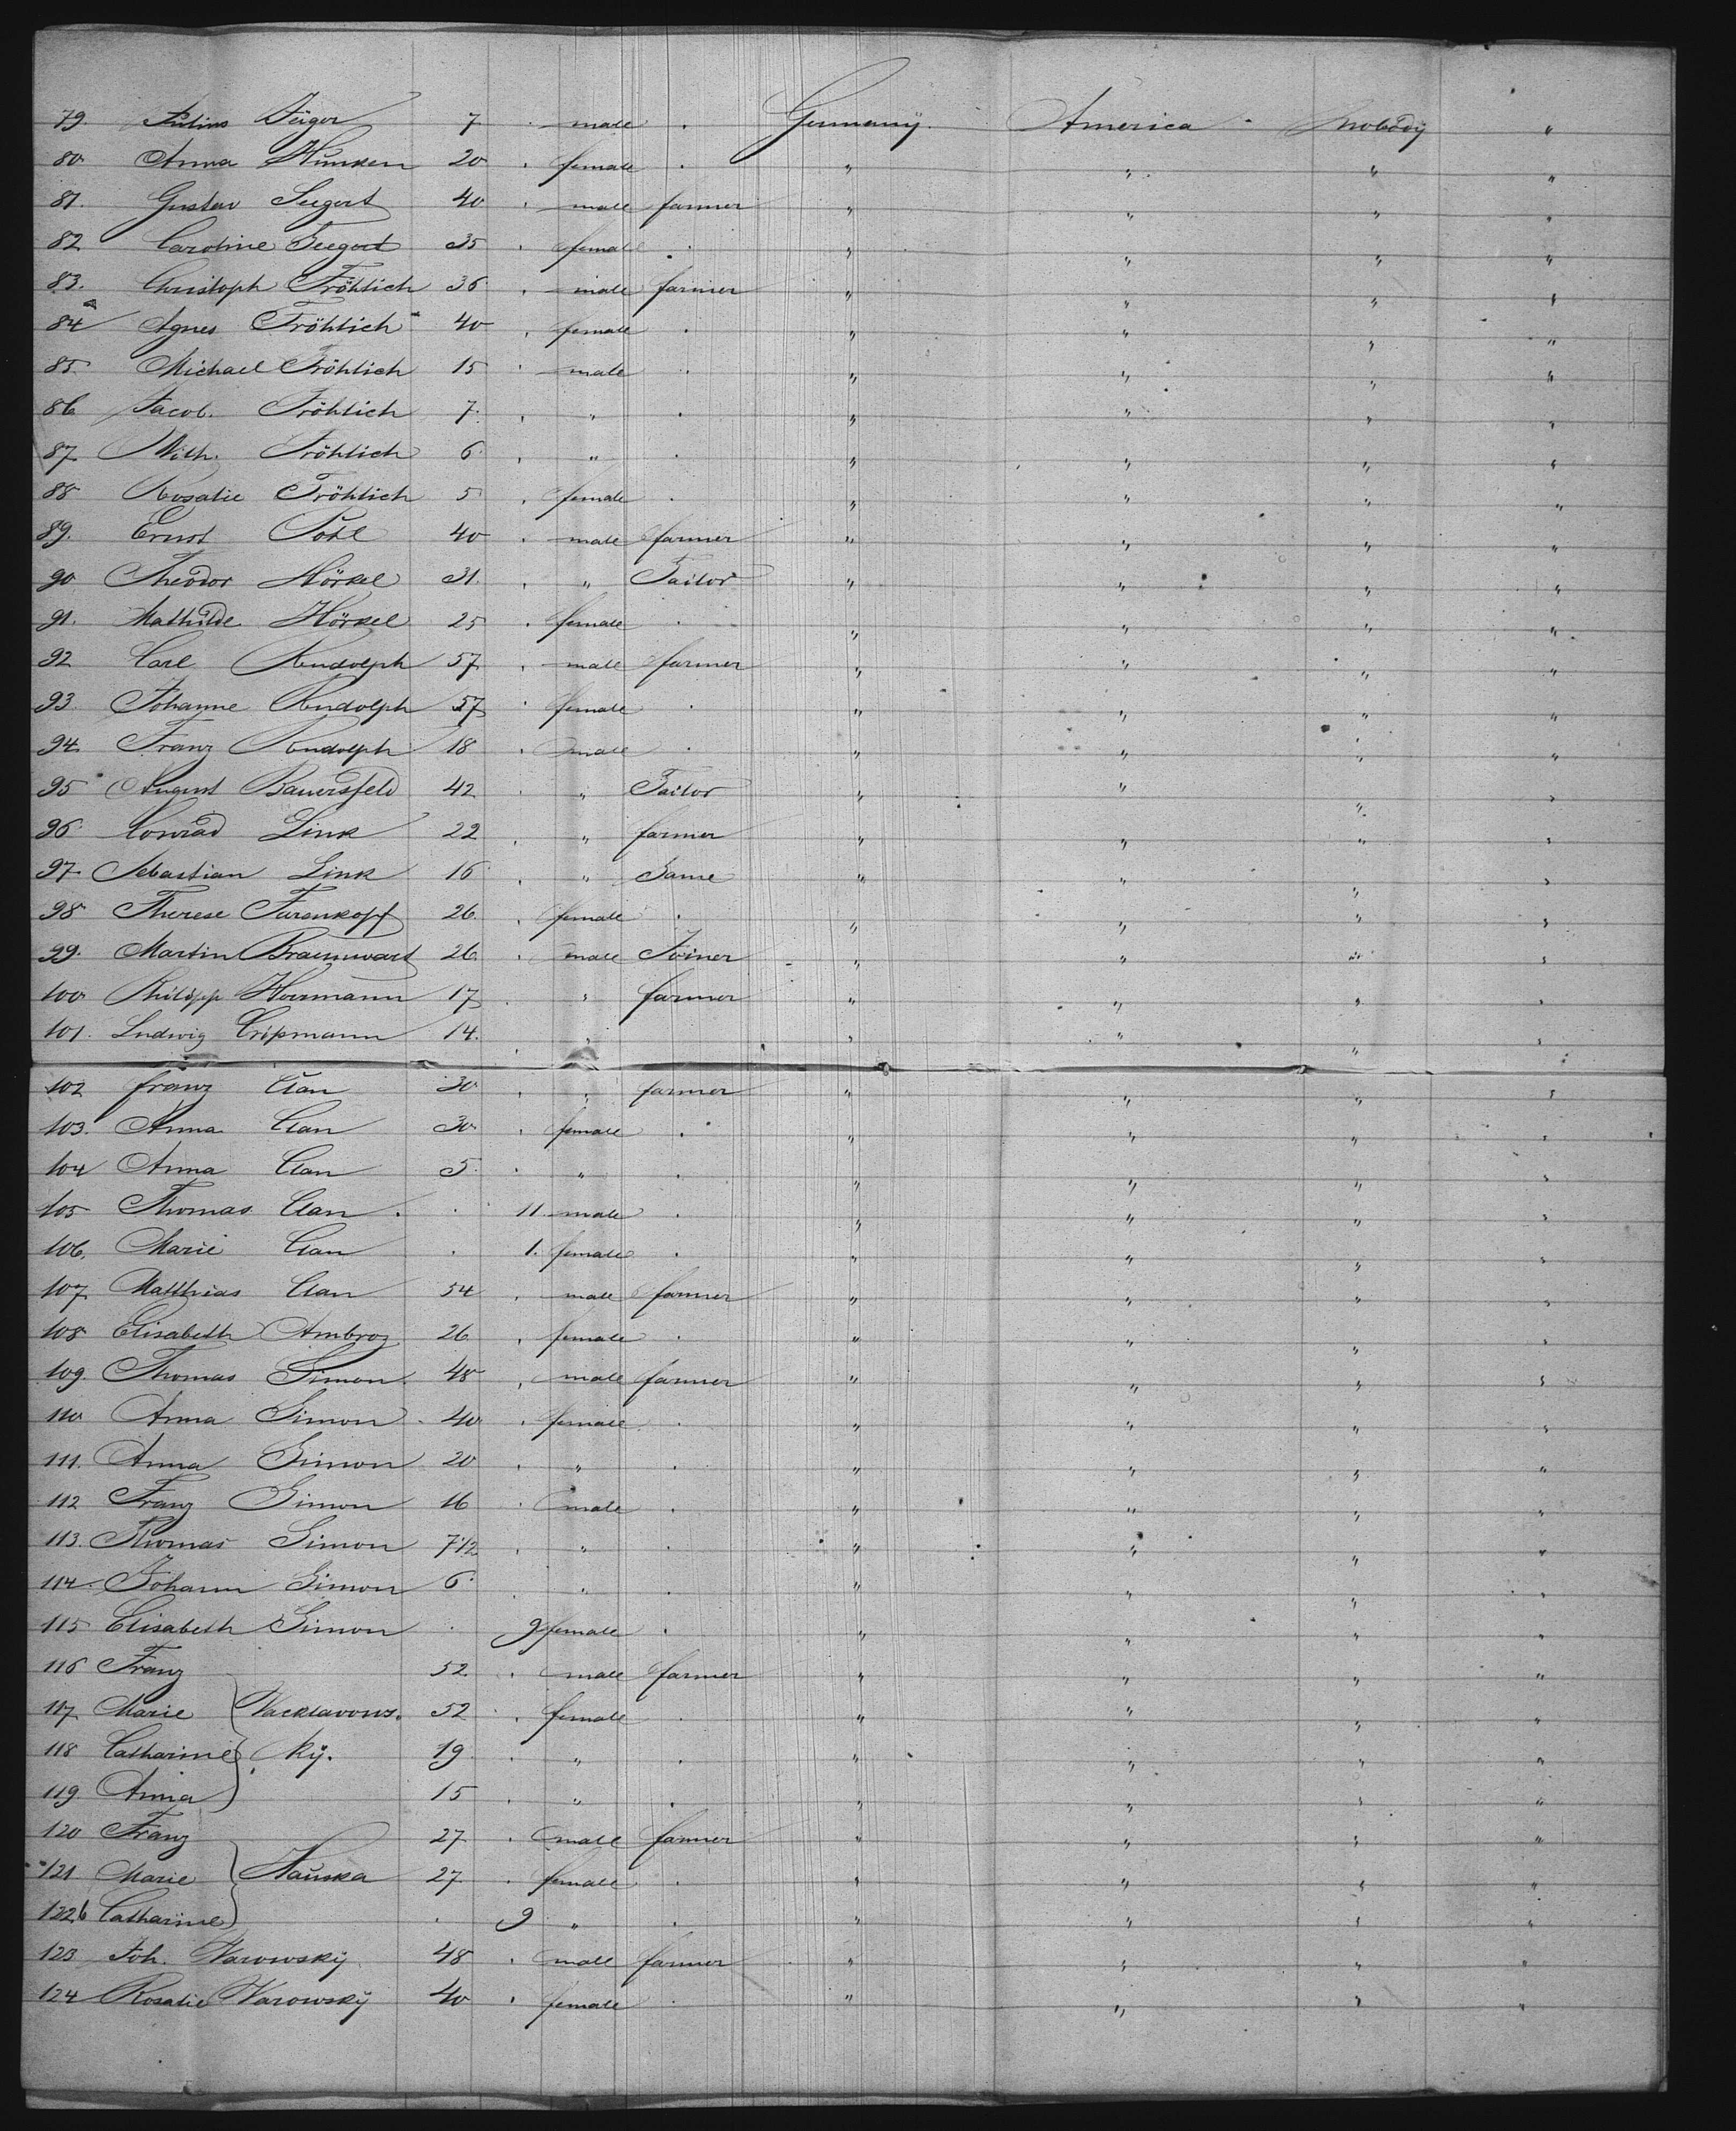 79. Julius Jäger 7. . male . Germany. America . nobody "
80. Anna Hünken 20 . female . " " " "
81. Gustav Seegert 40 . male farmer " " " "
82 Caroline Seegert 35 . female . " " " "
83. Christoph Fröhlich 36 . male farmer " " " "
84 Agnes Fröhlich 40 . female . " " " "
85 Michael Fröhlich 15 . male . " " " "
86 Jacob. Fröhlich 7. . " . " " " "
87. Wilh. Fröhlich 6 . " . " " " "
88 Rosalie Fröhlich 5 . female . " " " "
89. Ernst Pohl 40 . male farmer " " " "
90 Theodor Hörkel 31. . " Tailor " " " "
91. Mathilde Hörkel 25 . female . " " " "
92 Carl Rudolph 57 . male farmer " " " "
93. Johanne Rudolph 57 . female . " " " "
94. Franz Rudolph 18 . male . " " " "
95 August Bauersfeld 42 . " Tailor " " " "
96 Conrad Link 22 . " farmer " " " "
97. Sebastian Link 16 . " Same " " " "
98 Therese Farenkopf 26. . female . " " " "
99. Martin Braunwart 26. . male Joiner " " " "
100 Philipp Herrmann 17 . " farmer " " " "
101. Ludwig Cripmann 14. . " " " " "
102 franz Clan 30 . " farmer " " " "
103. Anna Clan 30 . female . " " " "
104 Anna Clan 5. . " . " " " "
105 Thomas Clan . . 11. male . " " " "
106. Marie Clan . 1. female . " " " "
107. Matthias Clan 54 . male farmer " " " "
108 Elisabeth Ambroz 26 . female . " " " "
109. Thomas Simon. 48 . male farmer " " " "
110 Anna Simon . 40 . female . " " " "
111. Anna Simon 20 . " . " " " "
112 Franz Simon 16 . male . " " " "
113. Thomas Simon 7 1/2 . " . " " " "
114. Johann Simon 6. . " . " " " "
115 Elisabeth Simon . 9 female . " " " "
116 Franz 52 . male farmer " " " "
117. Marie Wacklavows. 52 . female . " " " "
118 Catharine ky. 19 . " . " " " "
119. Anna 15 . " . " " " "
120 Franz 27 . male farmer " " " "
121 Marie Hauska 27 . female . " " " "
122 Catharine . 9 " . " " " "
123 Joh. Warowsky 48 . male farmer " " " "
124 Rosalie Warowsky 40 . female . " " " "